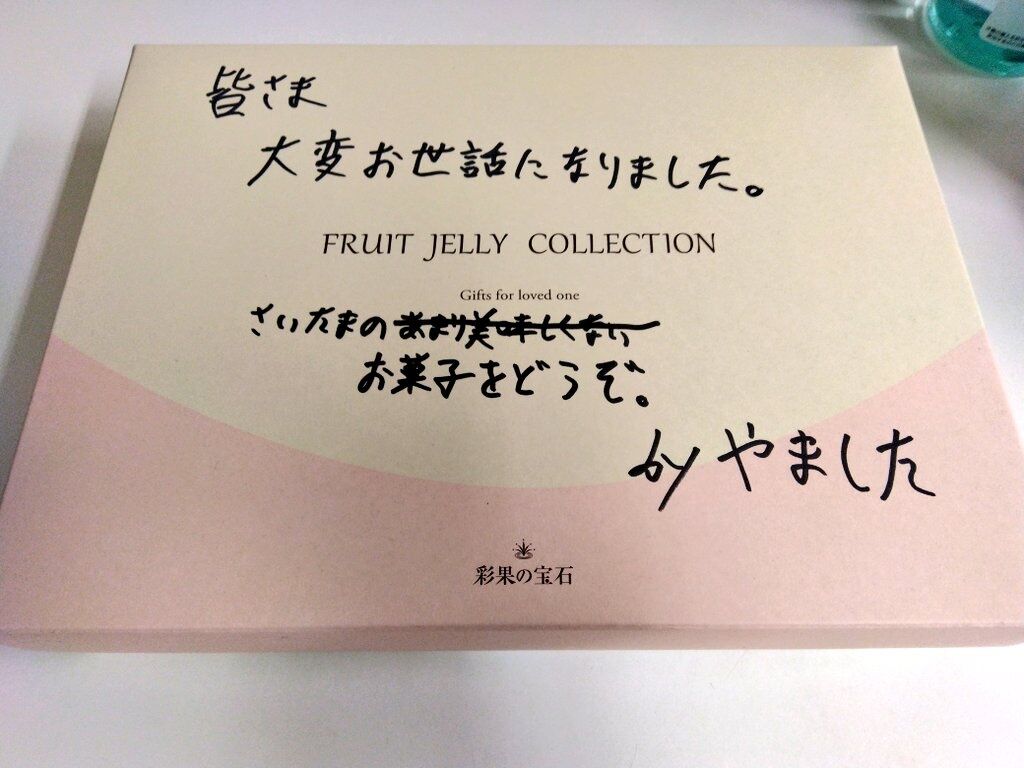 皆さま
大変お世話になりました。
FRUIT JELLY COLLECTION
Gifts for loved one
さいたまのあまり美味しくない
お菓子をどうぞ。
by やました
彩果の宝石